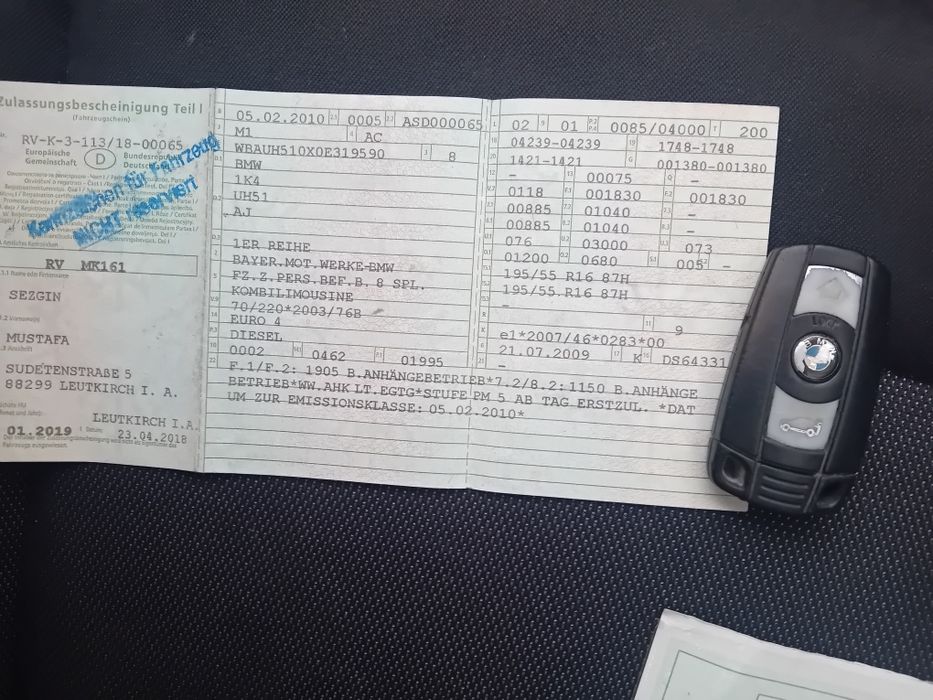 Zulassungsbescheinigung Teil I
(Fahrzeugschein)
RV-K-3-113/18-00065
Europäische Gemeinschaft
D
Bundesrepublik Deutschland
Kennzeichen für Fahrzeug
NICHT reserviert
RV MK161
SEZGIN
MUSTAFA
SUDETENSTRAßE 5
88299 LEUTKIRCH I. A.
LEUTKIRCH I.A.
01.2019
23.04.2018
05.02.2010 0005 ASD000065
M1 AC
WBAUH510X0E319590 8
BMW
1K4
UH51
AJ
1ER REIHE
BAYER.MOT.WERKE-BMW
FZ.Z.PERS.BEF.B. 8 SPL.
KOMBILIMOUSINE
70/220*2003/76B
EURO 4
DIESEL
0002 0462 01995
02 01 0085/04000 200
04239-04239 1748-1748
1421-1421 001380-001380
- 00075 -
0118 001830 001830
00885 01040 -
00885 01040 -
076 03000 073
01200 0680 005 -
195/55 R16 87H
195/55 R16 87H
-
9
e1*2007/46*0283*00
21.07.2009 K DS64331
F.1/F.2: 1905 B.ANHÄNGEBETRIEB*7.2/8.2:1150 B.ANHÄNGE
BETRIEB*WW.AHK LT.EGTG*STUFE PM 5 AB TAG ERSTZUL. *DAT
UM ZUR EMISSIONSKLASSE: 05.02.2010*
BMW